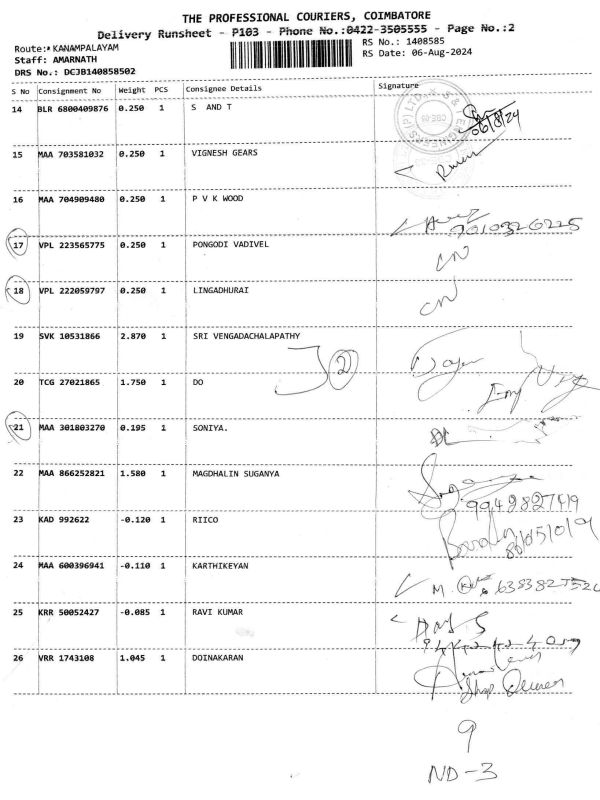 THE PROFESSIONAL COURIERS, COIMBATORE
Delivery Runsheet - P103 - Phone No.:0422-3505555 - Page No.:2
Route:* KANAMPALAYAM
RS No.: 1408585
Staff: AMARNATH
RS Date: 06-Aug-2024
DRS No.: DCJB140858502
S No Consignment No Weight PCS Consignee Details Signature
14 BLR 6800409876 0.250 1 S AND T
06/8/24
15 MAA 703581032 0.250 1 VIGNESH GEARS
16 MAA 704909480 0.250 1 P V K WOOD
17 VPL 223565775 0.250 1 PONGODI VADIVEL
CN
18 VPL 222059797 0.250 1 LINGADHURAI
CN
19 SVK 10531866 2.870 1 SRI VENGADACHALAPATHY
2
20 TCG 27021865 1.750 1 DO
21 MAA 301803270 0.195 1 SONIYA.
DL
22 MAA 866252821 1.580 1 MAGDHALIN SUGANYA
23 KAD 992622 -0.120 1 RIICO
24 MAA 600396941 -0.110 1 KARTHIKEYAN
25 KRR 50052427 -0.085 1 RAVI KUMAR
26 VRR 1743108 1.045 1 DOINAKARAN
Shop Owner
9
ND-3